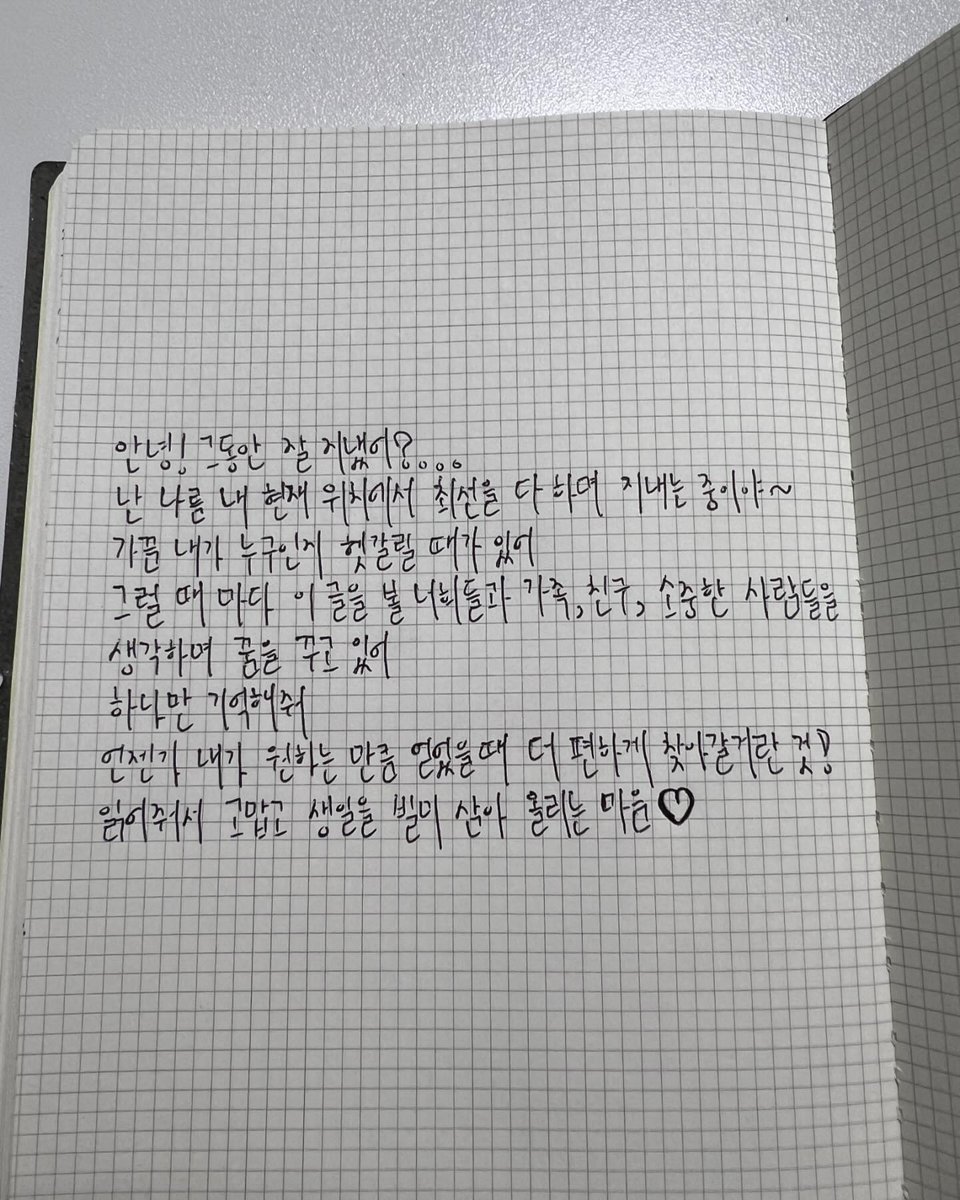 안녕! 그동안 잘 지냈어?...
난 나름 내 현재 위치에서 최선을 다 하며 지내는 중이야~
가끔 내가 누구인지 헷갈릴 때가 있어
그럴 때 마다 이 글을 볼 너희들과 가족, 친구, 소중한 사람들을
생각하며 꿈을 꾸고 있어
하나만 기억해줘
언젠가 내가 원하는 만큼 얻었을때 더 편하게 찾아갈거란 것!
읽어주어서 고맙고 생일을 빌미 삼아 올리는 마음♡